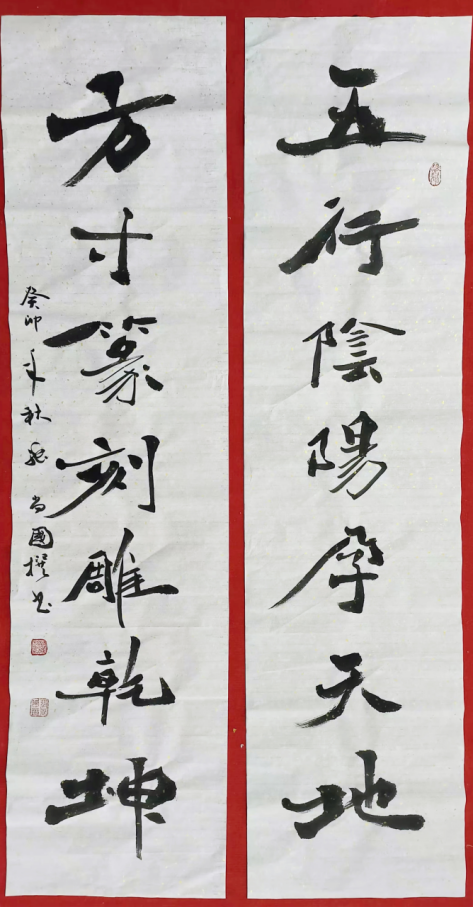 五行陰陽孕天地
方寸篆刻雕乾坤
癸卯年秋 尚國撰书